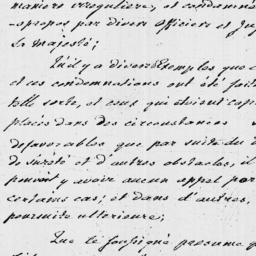 maniere irreguliere, et condamné
-apropos par divers Officiers et Jug
Sa Majesté;
Qu'il y a divers Exemples que c
et ces condamnations ont été faite
telle sorte, et ceux qui etoient
placés dans des circonstances
defavorables que par suite du
de sureté et d'autres obstacles, il
pouvoit y avoir aucun appel par
certains cas; et dans d'autres,
poursuite ulterieure;
Que le soussigné presume q